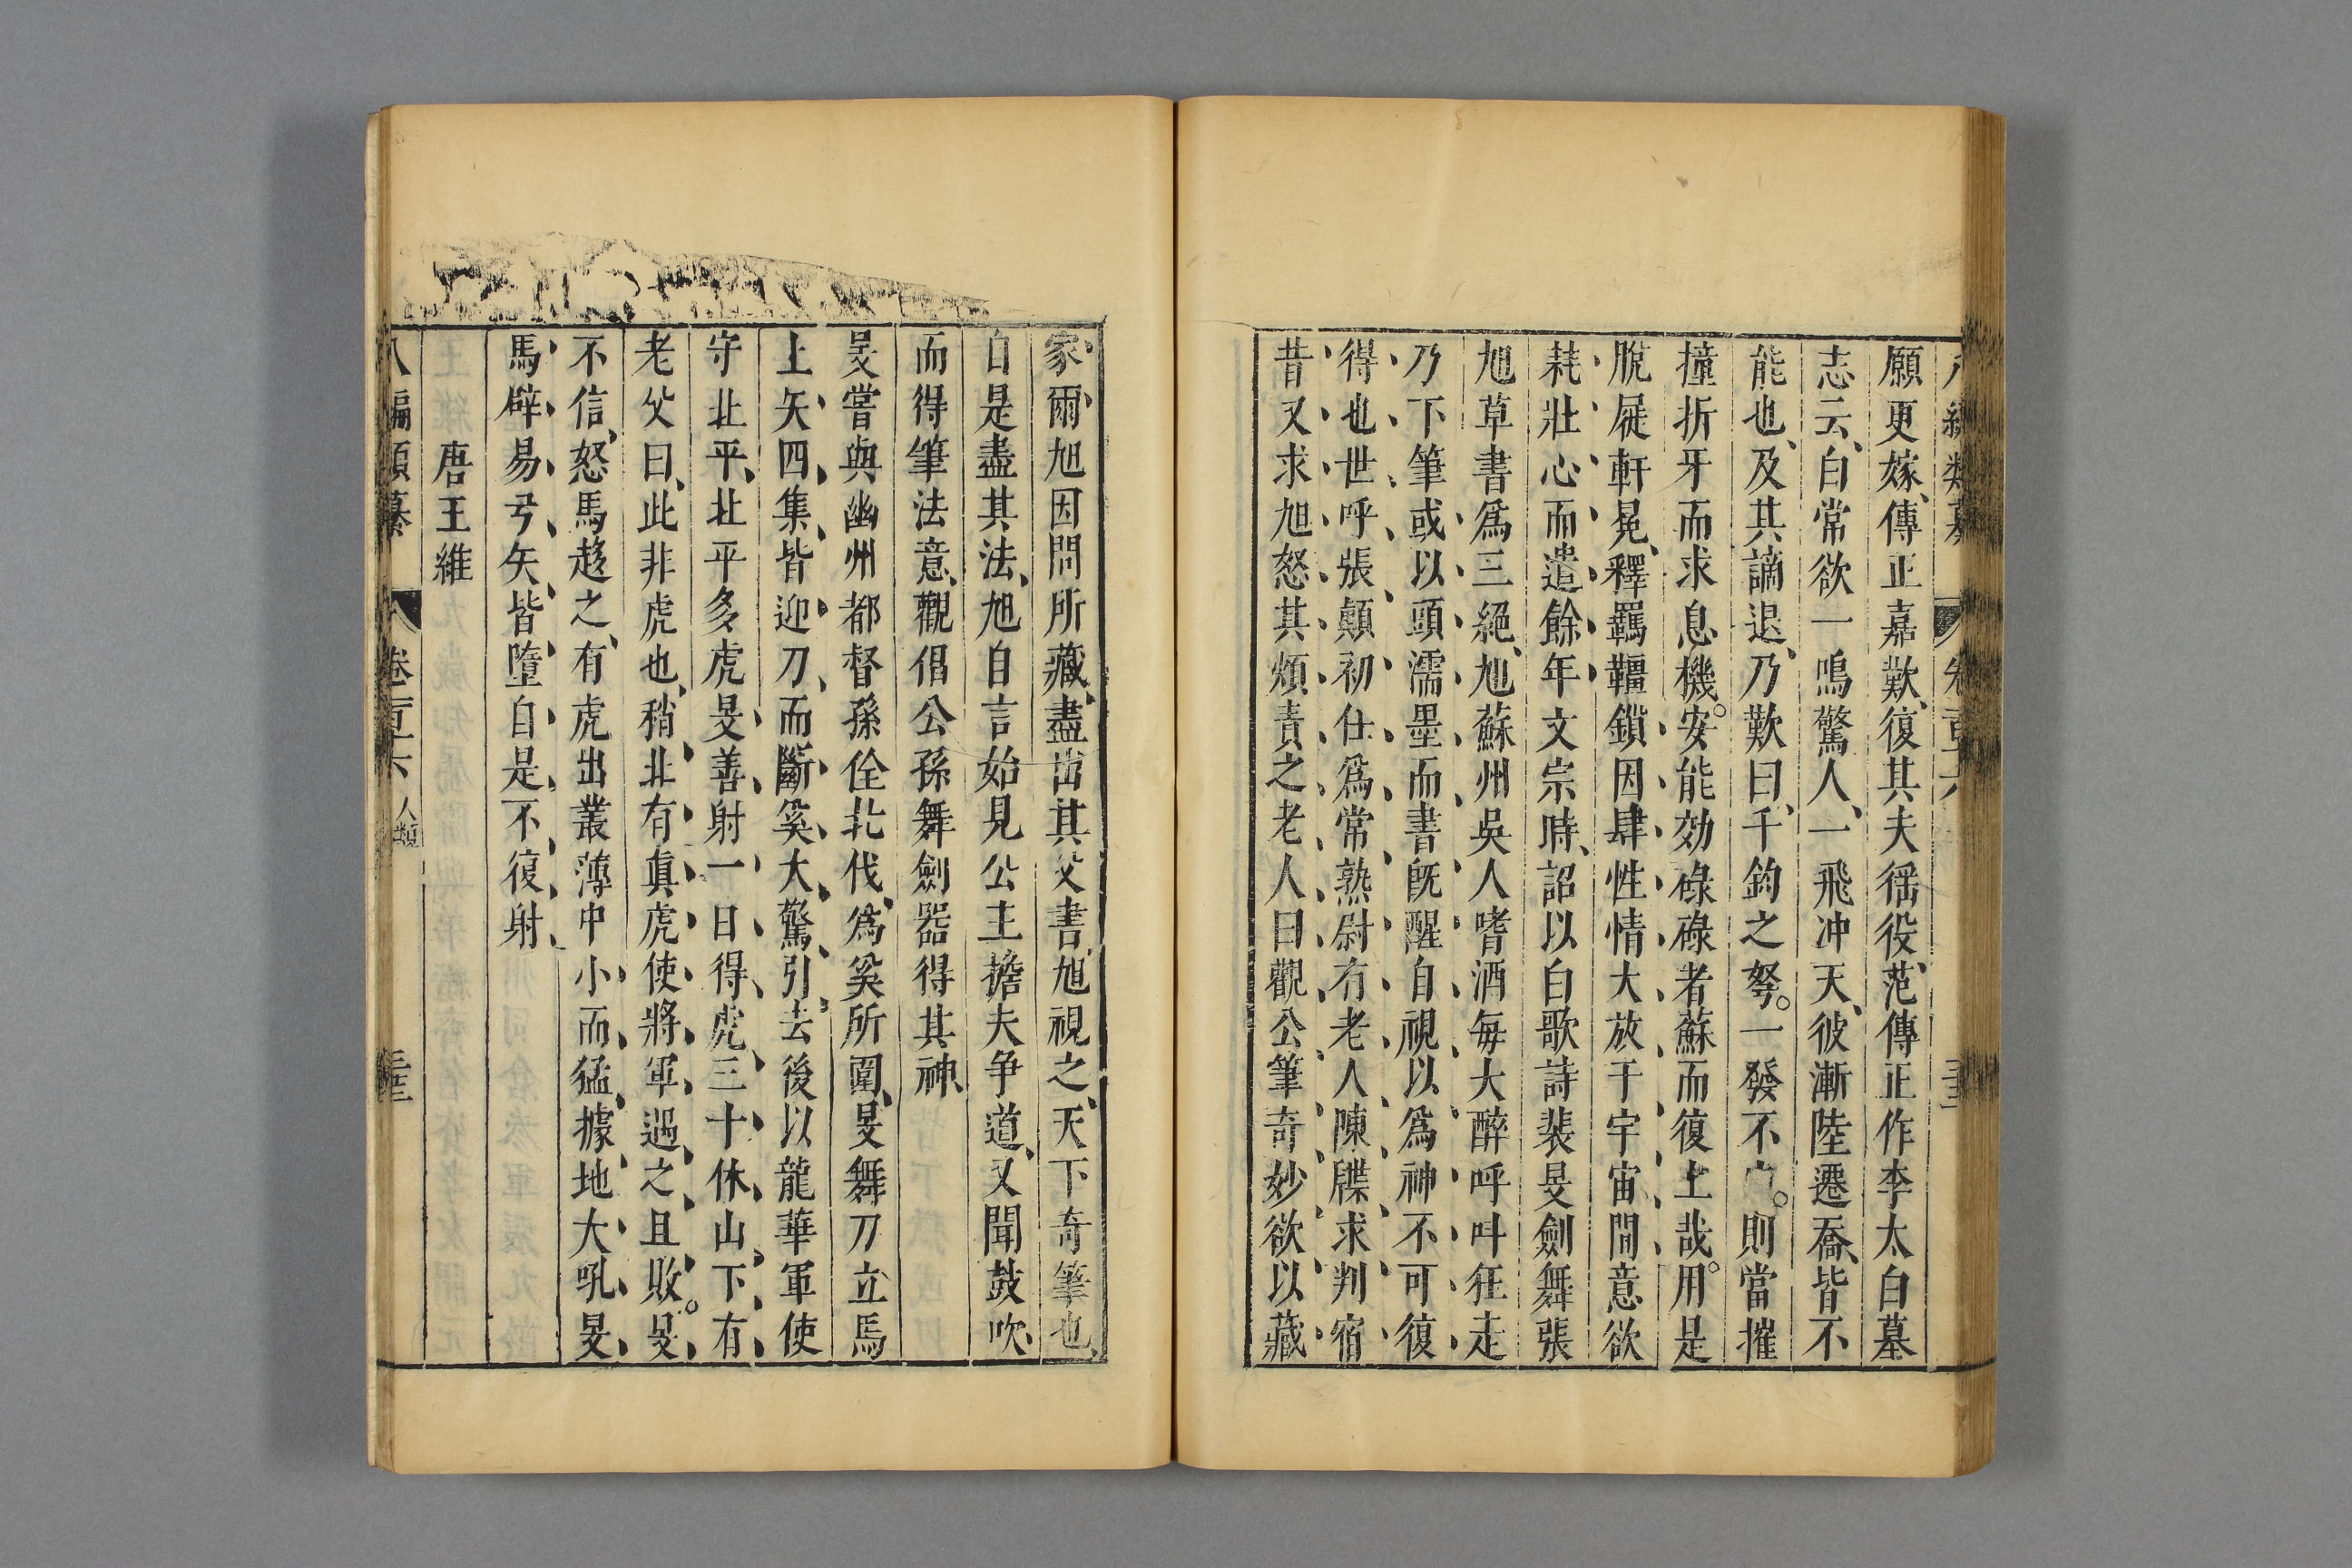 願更嫁、傳正嘉歎、復其夫徭役、范傳正作李太白墓
志云、白常欲一鳴驚人、一飛冲天、彼漸陸遷喬、皆不
能也、及其謫退、乃歎曰、千鈞之弩。一發不。則當摧
撞折牙而求息機。安能効碌碌者蘇而復上哉。用是
脫屣軒冕、釋羈韁鎖因肆性情大放于宇宙間意欲
耗壯心而遣餘年文宗時、詔以白歌詩裴旻劍舞張
旭草書爲三絕、旭蘇州吳人嗜酒每大醉呼呌狂走
乃下筆或以頭濡墨而書旣醒自視以爲神不可復
得也世呼張顛初仕爲常熟尉有老人陳牒求判宿
昔又求旭怒其煩責之老人曰觀公筆奇妙欲以藏
家爾旭因問所藏、盡出其父書、旭視之、天下奇筆也、
自是盡其法、旭自言始見公主擔夫争道、又聞鼓吹、
而得筆法意、觀倡公孫舞劍器得其神、
旻嘗與幽州都督孫佺北伐、爲奚所圍、旻舞刀立馬
上矢四集、皆迎刀而斷奚大驚、引去後以龍華軍使
守北平、北平多虎旻善射一日得虎三十休山下有
老父曰、此非虎也、稍北有真虎使將軍遇之且敗。旻
不信、怒馬趍之、有虎出叢薄中小而猛據地大吼旻
馬辟易弓矢皆墮自是不復射
唐王維
八編類纂 卷百六 人類